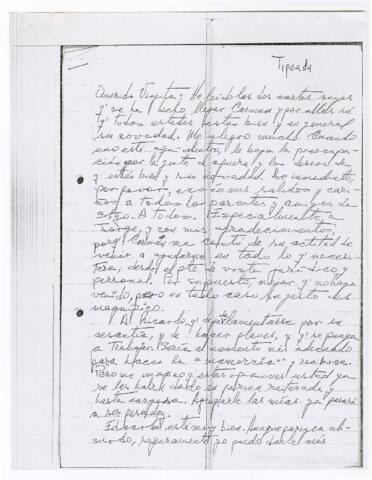 Tipeada
Querida Viejita: He leído las dos cartas suyas
q' me ha hecho llegar Carmen y por ellas sé
q' todos ustedes están bien y en general
sin novedad. Me alegro mucho. Cuando
uno está aquí dentro, le baja la preocupa-
ción por la gente de afuera y los deseos de
q' estén bien y sin novedad. De inmediato,
por favor, envío mis saludos y cari-
ños a todos los parientes y amigos de
Stgo. A todos. Especialmente, a
Jorge, y con mis agradecimientos,
porq' Carmen me contó de su actitud de
venir a ayudarme en todo lo q' necesi-
tara, desde el pto. de vista jurídico y
personal. Por supuesto, mejor q' no haya
venido, pero en todo caso su gesto es
magnífico.
A Ricardo, q' por su
cesantía, y de hacer planes, y q' se ponga
a trabajar. Sería el momento más adecuado
para hacer la "memoria"
Pero me imagino q' estas opiniones usted ya
se las habrá dado en forma reiterada y
hasta cargosa. Agregarle las mías ya pasaría
a ser pesadez.
Eduardo está muy bien. Aunque parezca
seguramente yo puedo verle más